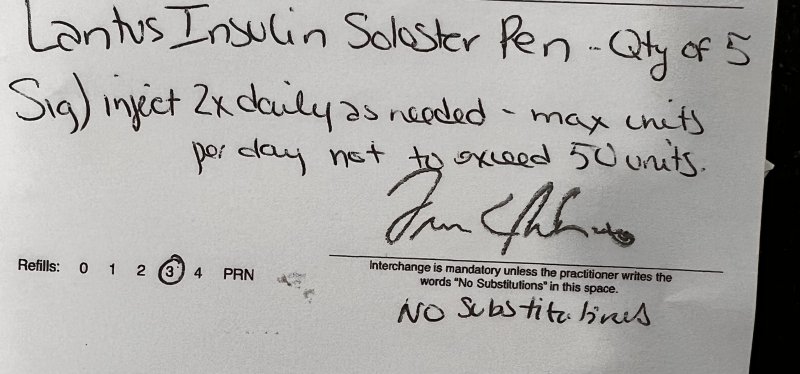 Lantus Insulin Soloster Pen - Qty of 5
Sig) inject 2x daily as needed - max units
per day not to exceed 50 units.
Refills: 0 1 2 3 4 PRN
Interchange is mandatory unless the practitioner writes the
words "No Substitutions" in this space.
NO Substitutions